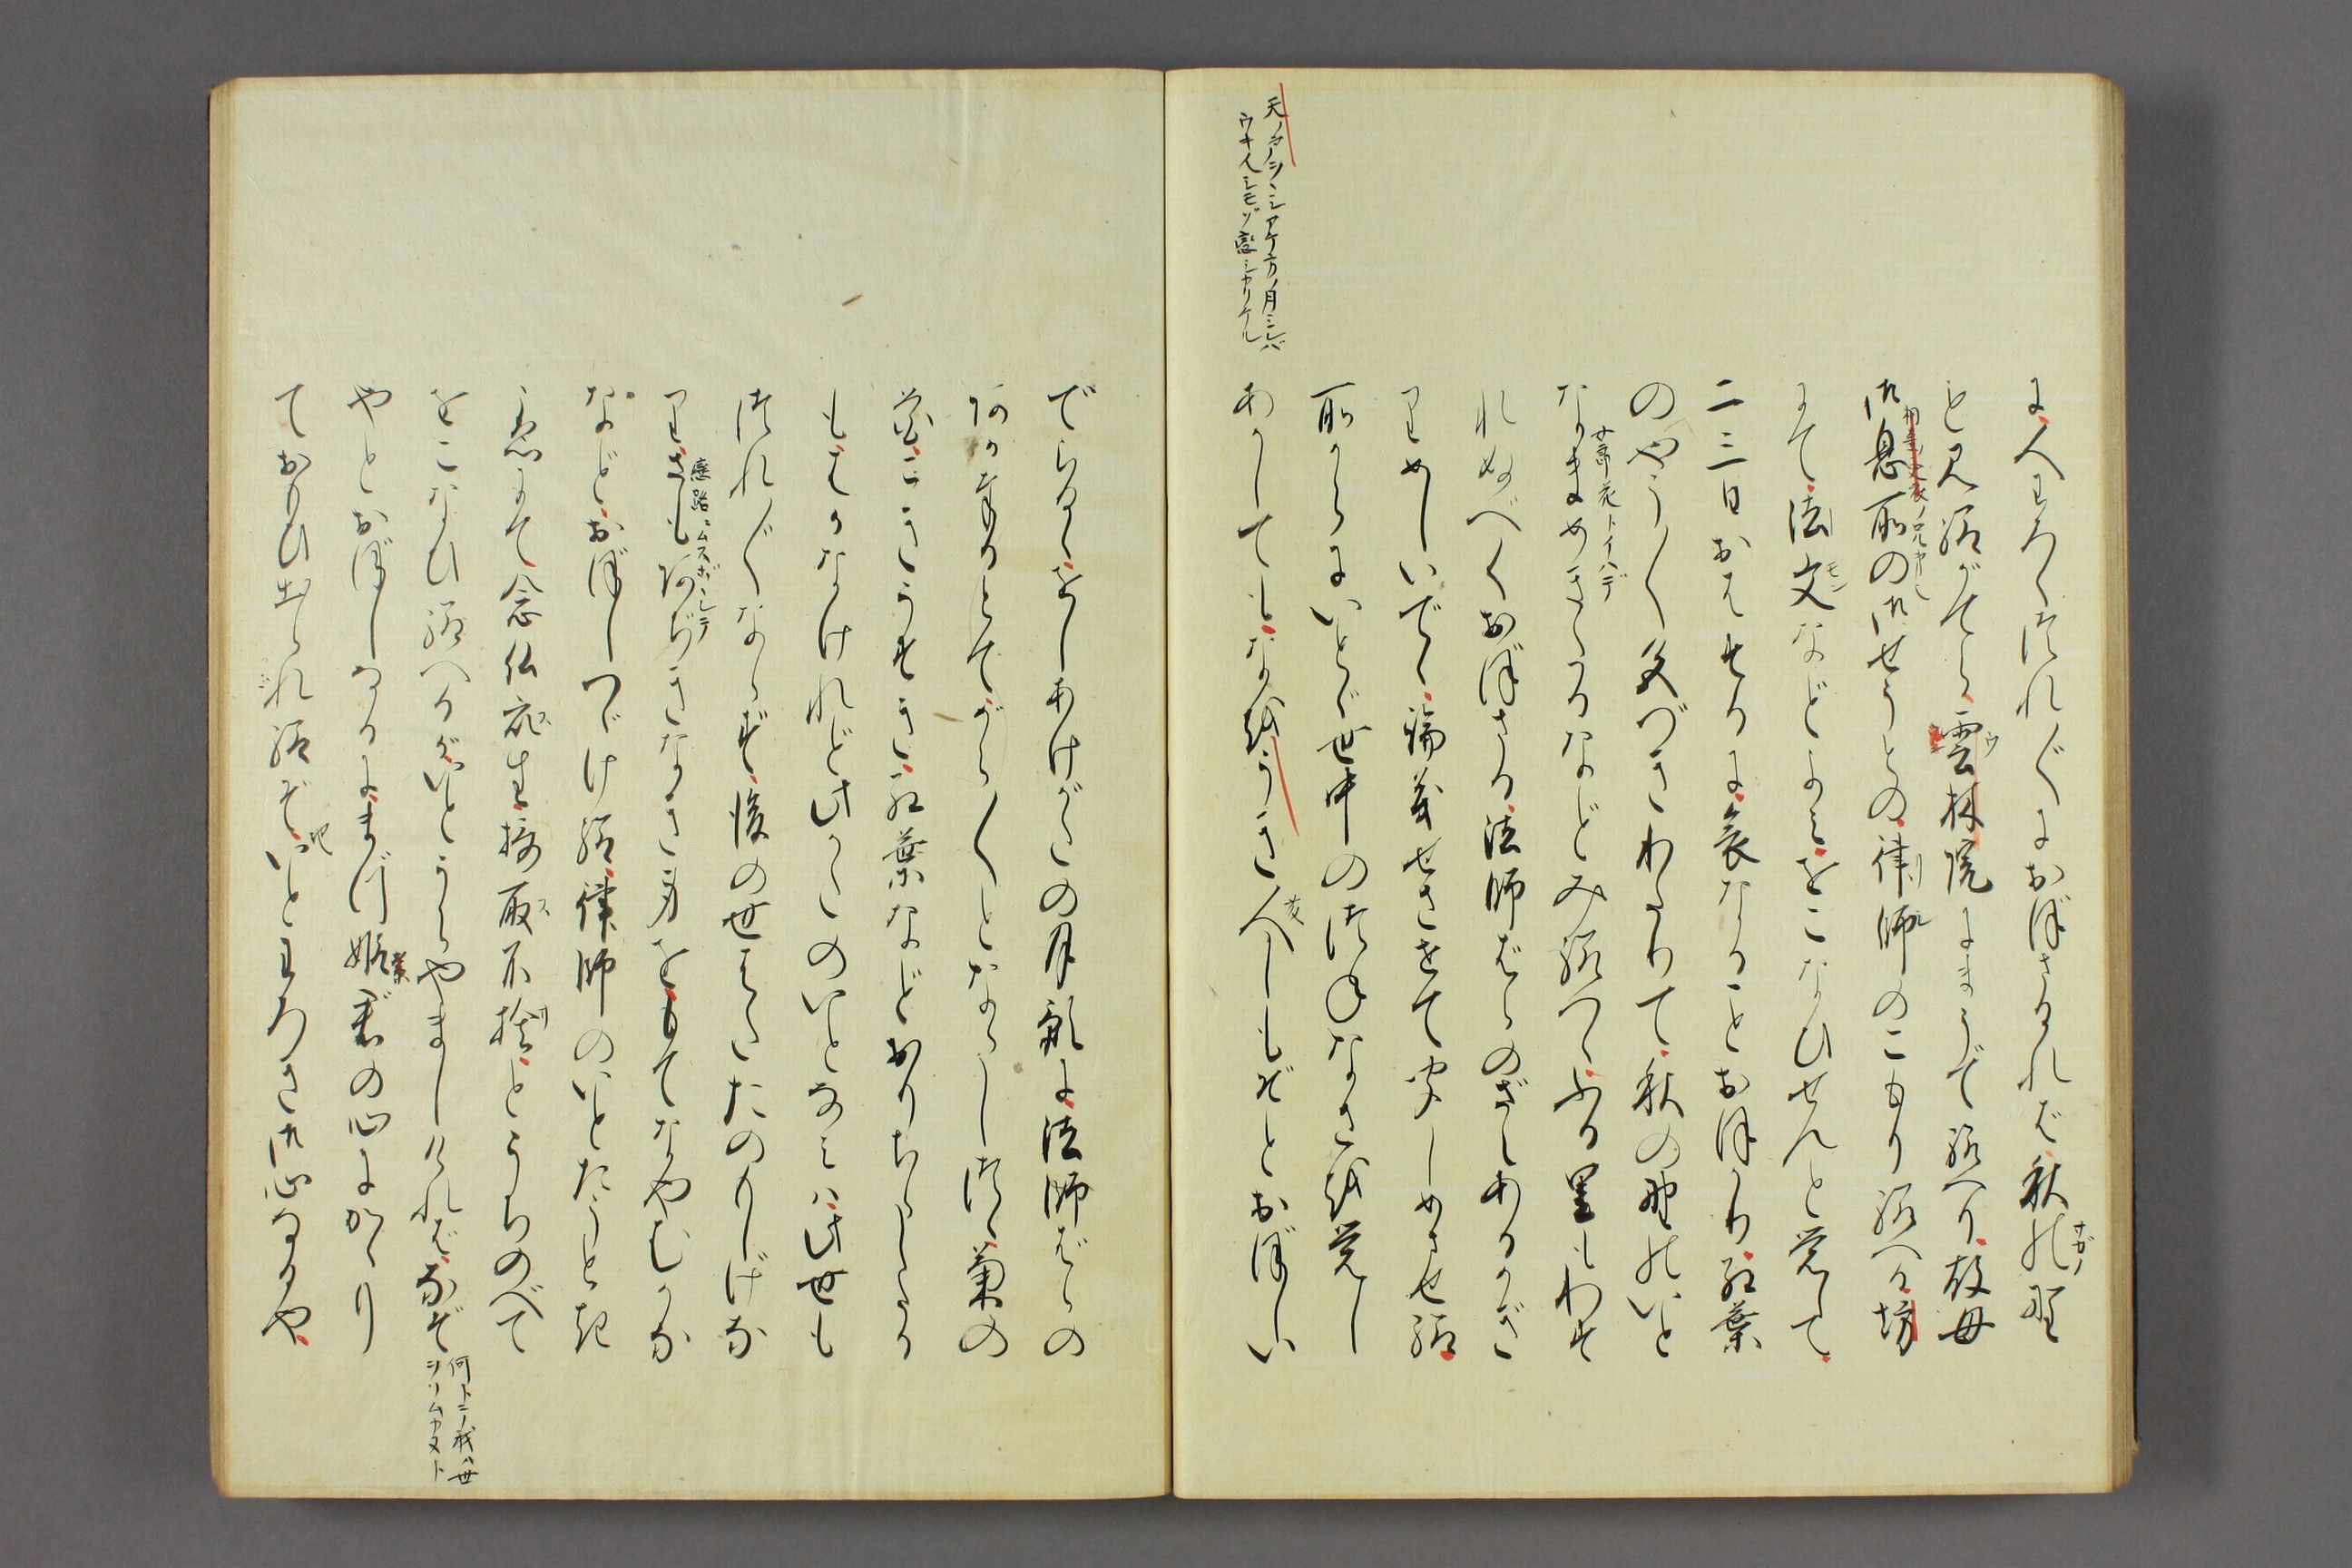 に人わろくつれ〴〵におぼさるれば秋の野
も見給がてら雲林院にまうで給へり故母
御息所の御せうとの律師のこもり給へる坊
にて法文などよみをこなひせんと覚して
二三日おはするに哀なることおほかり紅葉
のやう〳〵色づきわたりて秋の野のいと
なまめきたるなどみ給つゝふる里もわす
れぬべくおぼさる法師ばらのざえあるかぎ
りめしいでゝ論義せさせて聞しめさせ給
所からにいとゞ世中のつねなさを覚し
あかしてもなをうき人しもぞとおぼしい
天ノ戸ヲヲシアケ方ノ月ミレバ
ウキ人シモゾ恋シカリケル
でらるゝをしあけがたの月影に法師ばらの
あかたてまつるとてから〳〵とならしつゝ菊の
花こきうすき紅葉などおりちらしたる
もはかなけれど此かたのいとなみは此世も
つれ〴〵ならず後の世はたたのもしげな
りさもあぢきなき身をもてなやむかな
などおぼしつゞけ給律師のいとたうとき
こゑにて念仏衆生摂取不捨とうちのべて
をこなひ給へるがいとうらやましければなぞ
何トニ我ハ世
ヲソムカヌト
やとおぼしなるにまづ姫君の心にかゝり
ておもひ出られ給ぞいとわろき御心なるや